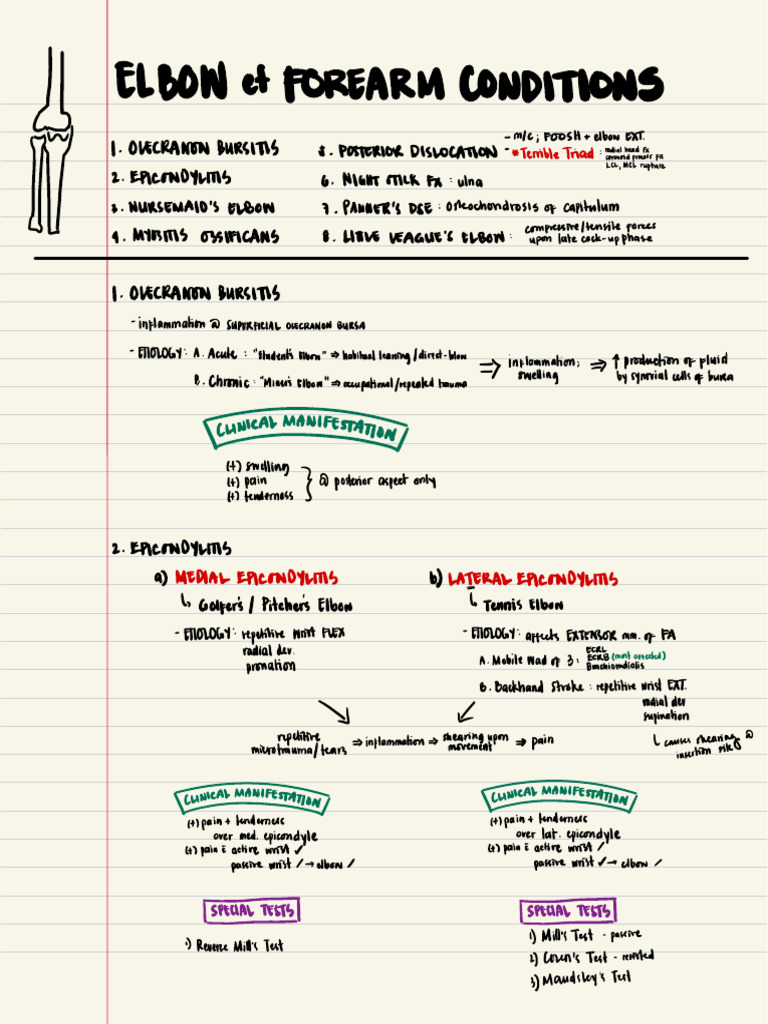 ELBOW et FOREARM CONDITIONS
1. OLECRANON BURSITIS
2. EPICONDYLITIS
3. NURSEMAID'S ELBOW
4. MYOSITIS OSSIFICANS
5. POSTERIOR DISLOCATION - m/c ; FOOSH + elbow EXT.
- *Terrible Triad : radial head fx
coronoid process fx
LCL, MCL rupture
6. NIGHT STICK FX : ulna
7. PANNER'S DSE : Osteochondrosis of capitulum
8. LITTLE LEAGUE'S ELBOW : compressive/tensile forces
upon late cock-up phase
1. OLECRANON BURSITIS
- inflammation @ SUPERFICIAL OLECRANON BURSA
- ETIOLOGY : A. Acute : "Student's Elbow" ⇒ habitual leaning/direct-blow
B. Chronic : "Miner's Elbow" ⇒ occupational/repeated trauma
⇒ inflammation;
swelling
⇒ ↑ production of fluid
by synovial cells of bursa
CLINICAL MANIFESTATION
(+) swelling
(+) pain } @ posterior aspect only
(+) tenderness
2. EPICONDYLITIS
a) MEDIAL EPICONDYLITIS
↳ Golfer's / Pitcher's Elbow
- ETIOLOGY : repetitive wrist FLEX
radial dev.
pronation
b) LATERAL EPICONDYLITIS
↳ Tennis Elbow
- ETIOLOGY : affects EXTENSOR mm. of FA
A. Mobile Wad of 3 : ECRL
ECRB (most affected)
Brachioradialis
B. Backhand Stroke : repetitive wrist EXT.
radial dev
supination
↳ causes shearing @
insertion site
repetitive
microtrauma/tears ⇒ inflammation ⇒ shearing upon
movement ⇒ pain
CLINICAL MANIFESTATION
(+) pain + tenderness
over med. epicondyle
(+) pain c̄ active wrist ✓
passive wrist / → elbow /
CLINICAL MANIFESTATION
(+) pain + tenderness
over lat. epicondyle
(+) pain c̄ active wrist /
passive wrist ✓ → elbow /
SPECIAL TESTS
1) Reverse Mill's Test
SPECIAL TESTS
1) Mill's Test - passive
2) Cozen's Test - resisted
3) Maudsley's Test